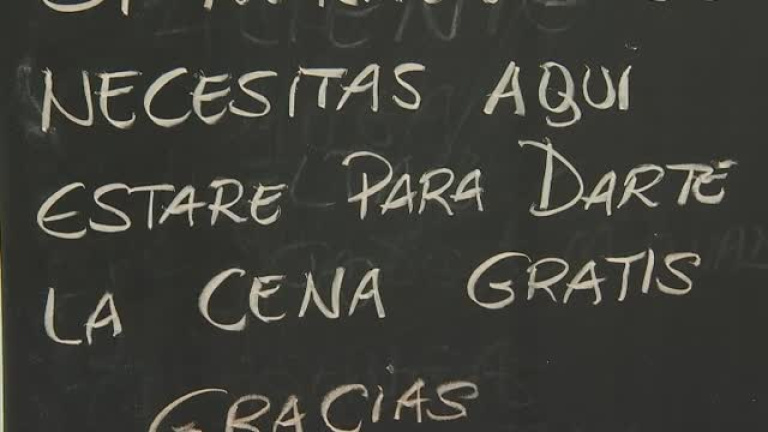 NECESITAS AQUI
ESTARE PARA DARTE
LA CENA GRATIS
GRACIAS